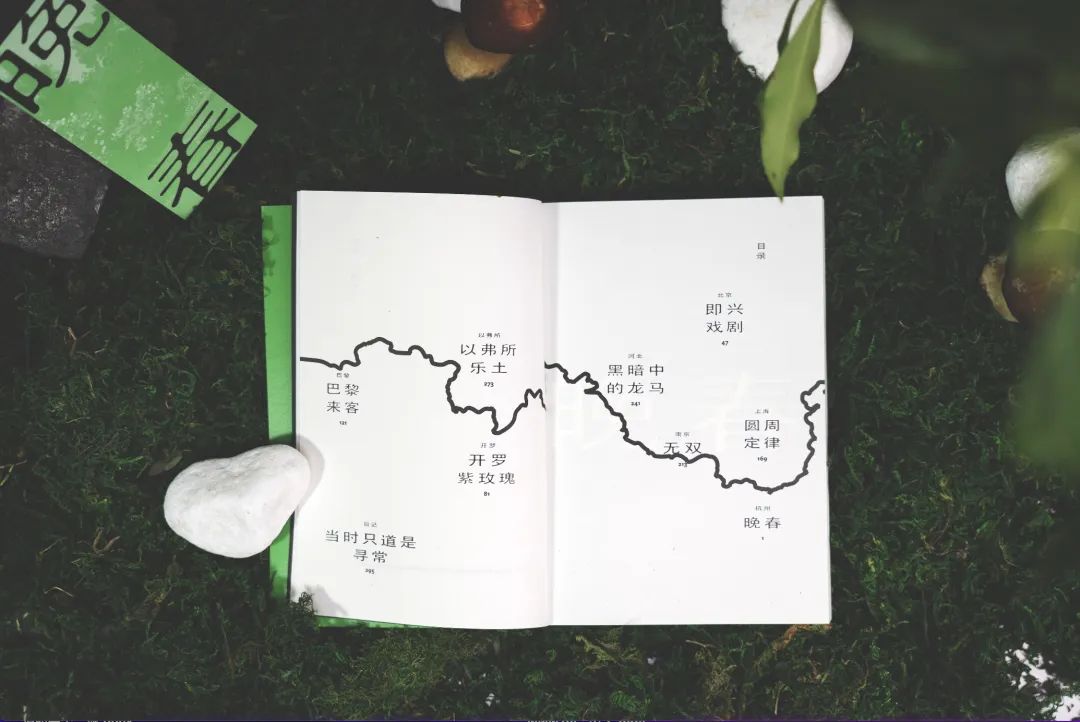 晚
春
目
录
北京
即兴
戏剧
47
河北
黑暗中
的龙马
241
上海
圆周
定律
169
南京
无双
213
杭州
晚春
1
晚春
以弗所
以弗所
乐土
273
巴黎
巴黎
来客
121
开罗
开罗
紫玫瑰
81
后记
当时只道是
寻常
295